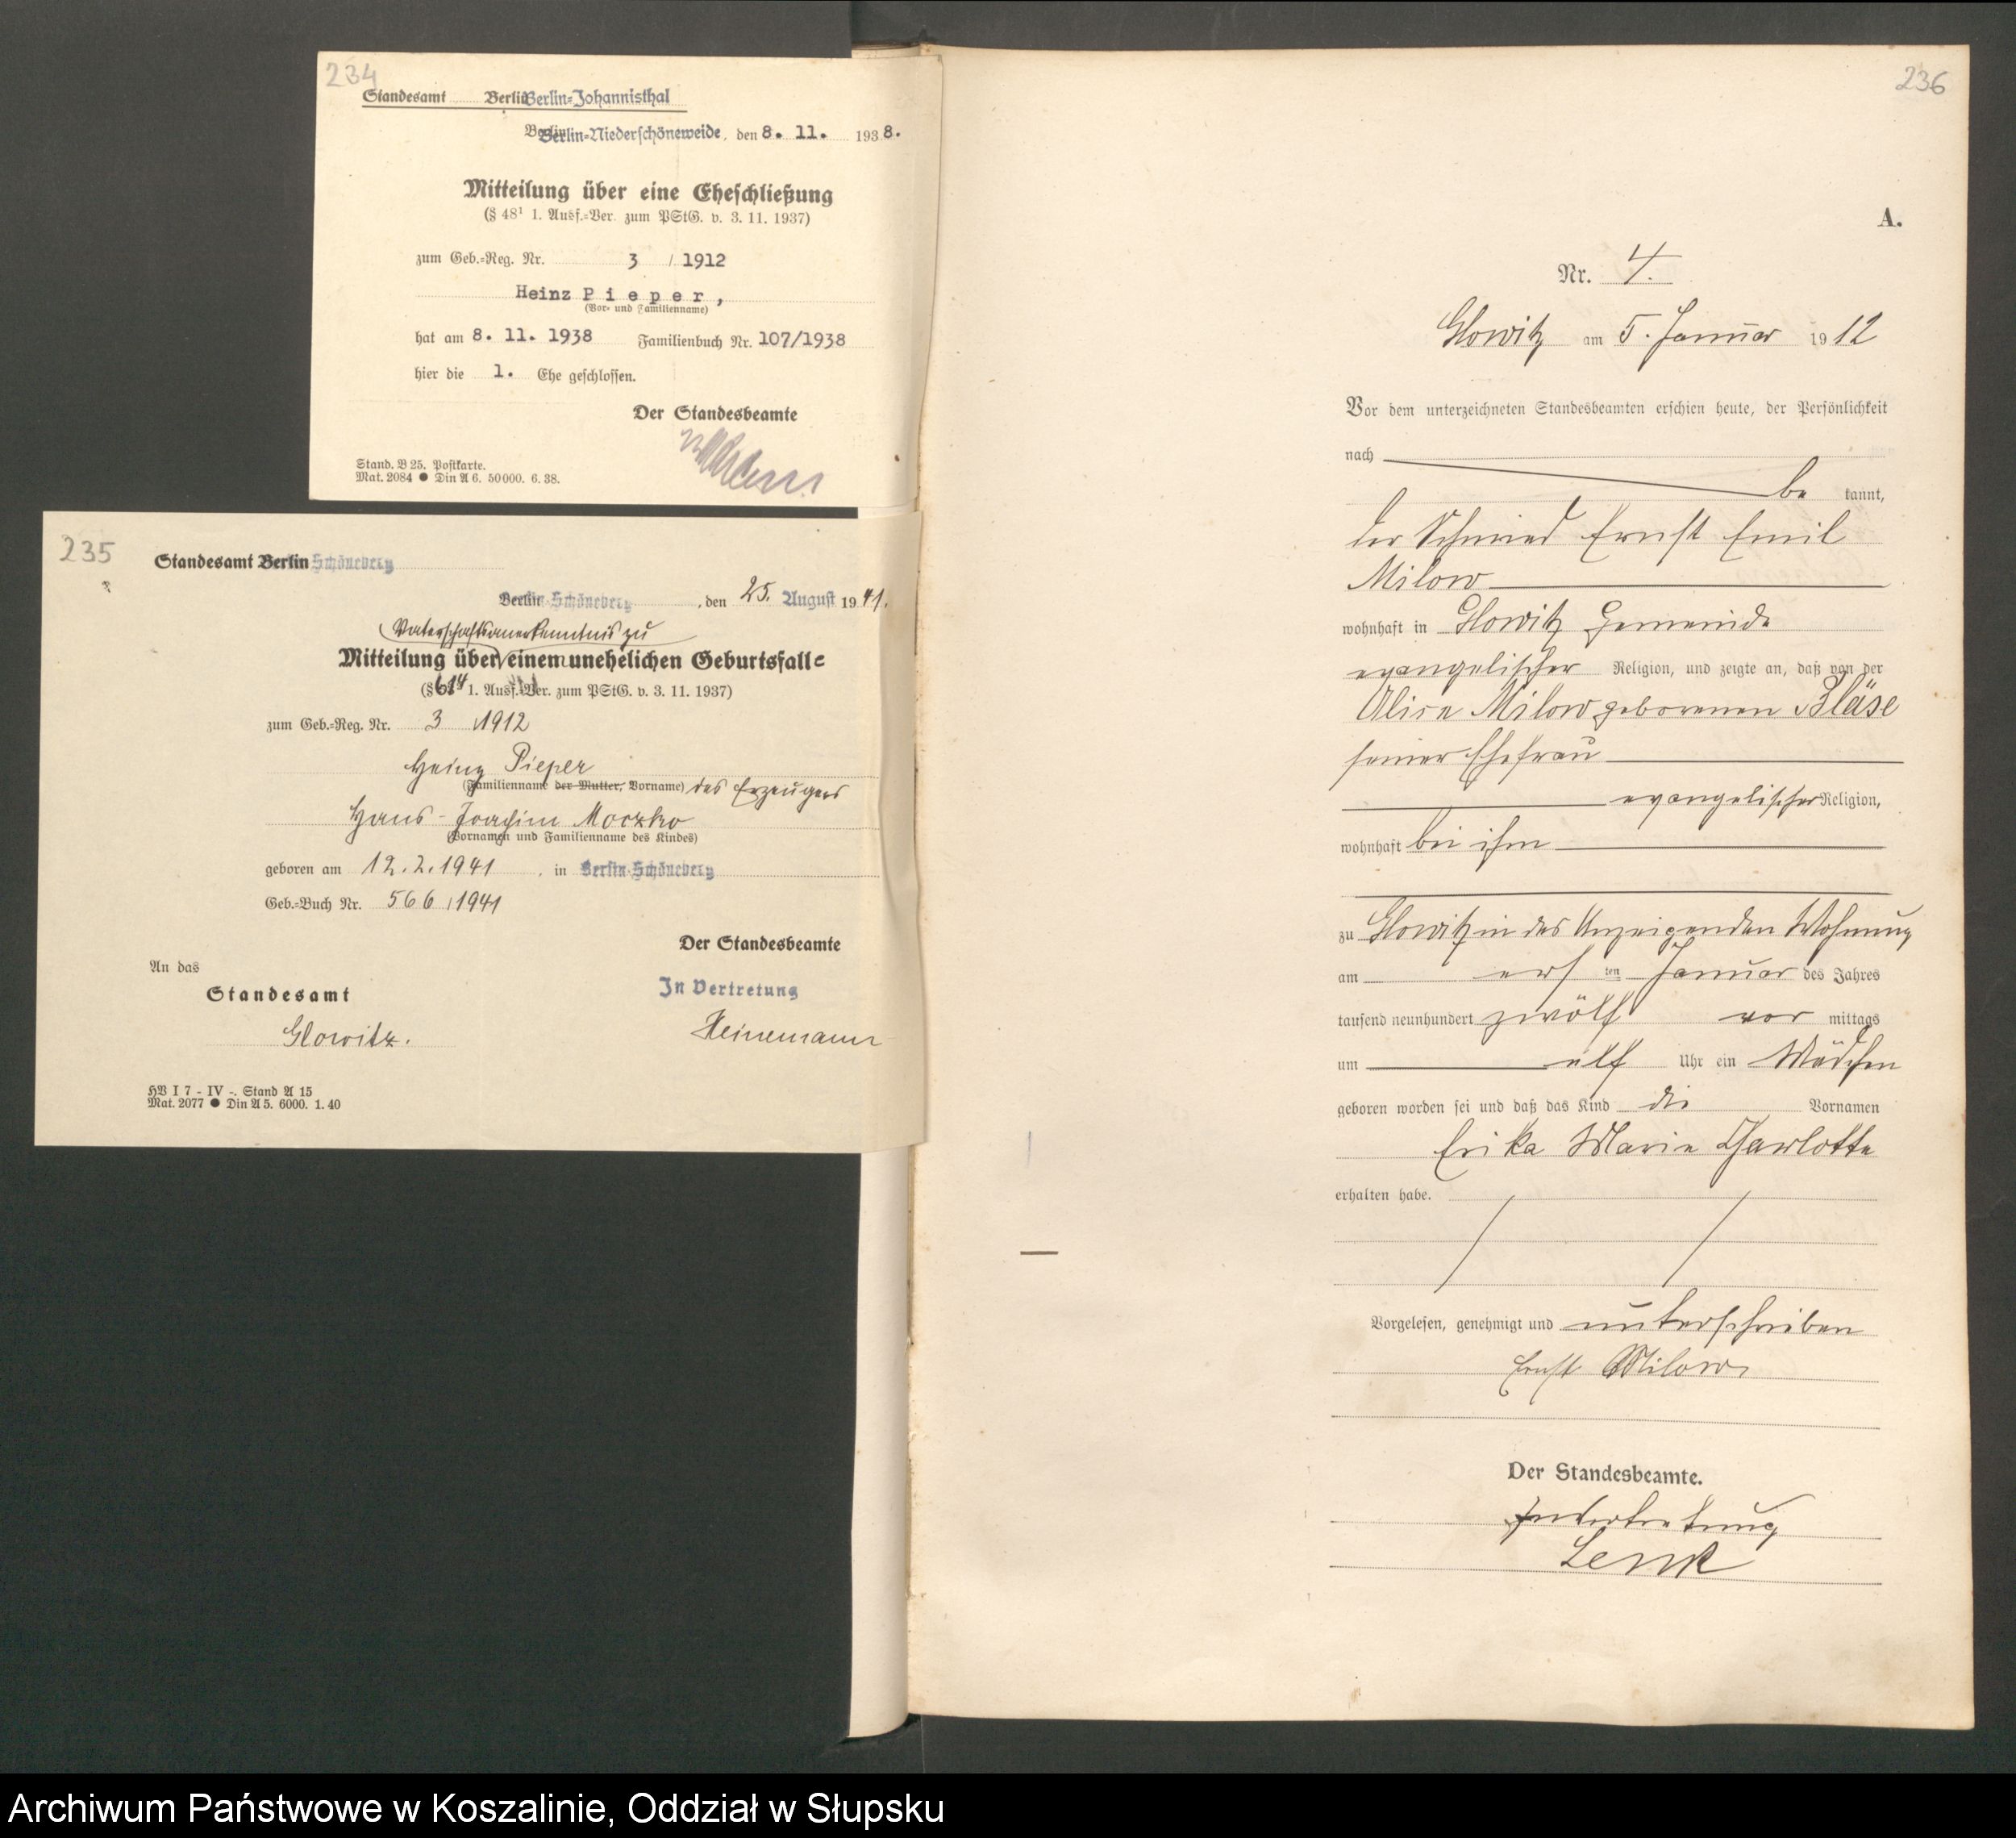 234
Standesamt Berlin Berlin-Johannisthal
Berlin Berlin-Niederschöneweide, den 8. 11. 1938.
Mitteilung über eine Eheschließung
(§ 48¹ 1. Ausf.-Ver. zum PStG. v. 3. 11. 1937)
zum Geb.-Reg. Nr. 3 / 1912
Heinz Pieper,
(Vor- und Familienname)
hat am 8. 11. 1938 Familienbuch Nr. 107/1938
hier die 1. Ehe geschlossen.
Der Standesbeamte
Stand. B 25. Postkarte.
Mat. 2084 ● Din A 6. 50000. 6. 38.
235
Standesamt Berlin Schöneberg
Berlin Schöneberg, den 25. August 1941.
Vaterschaftsanerkenntnis zu
Mitteilung über einem unehelichen Geburtsfall-
(§ 614 1. Ausf.-Ver. zum PStG. v. 3. 11. 1937)
zum Geb.-Reg. Nr. 3 / 1912
Heinz Pieper
(Familienname der Mutter, Vorname) des Erzeugers
Hans-Joachim Moczko
(Vornamen und Familienname des Kindes)
geboren am 12.2.1941, in Berlin-Schöneberg
Geb.-Buch Nr. 566 / 1941
Der Standesbeamte
An das
Standesamt
In Vertretung
Glowitz.
Heinemann
HB I 7 - IV -. Stand A 15
Mat. 2077 ● Din A 5. 6000. 1. 40
236
A.
Nr. 4.
Glowitz am 5. Januar 1912
Vor dem unterzeichneten Standesbeamten erschien heute, der Persönlichkeit
nach
be kannt,
der Schmied Ernst Emil
Milow
wohnhaft in Glowitz Gemeinde
evangelischer Religion, und zeigte an, daß von der
Alice Milow geborenen Bläse
seiner Ehefrau
evangelischer Religion,
wohnhaft bei ihm
zu Glowitz in des Anzeigenden Wohnung
am ersten Januar des Jahres
tausend neunhundert zwölf vor mittags
um elf Uhr ein Mädchen
geboren worden sei und daß das Kind die Vornamen
Erika Marie Charlotte
erhalten habe.
Vorgelesen, genehmigt und unterschrieben
Ernst Milow
Der Standesbeamte.
In Vertretung
Lenk
Archiwum Państwowe w Koszalinie, Oddział w Słupsku